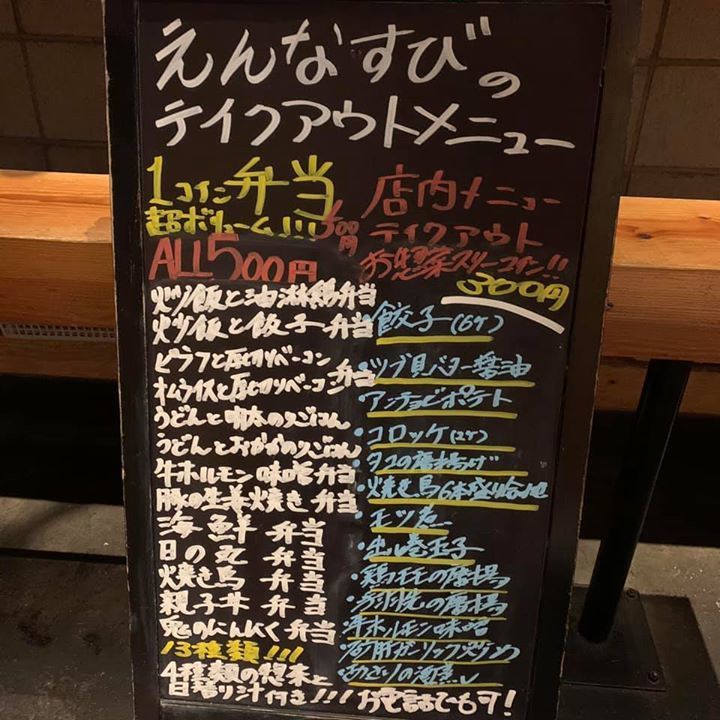 えんなすびの
テイクアウトメニュー
1コイン弁当
超ボリューム!!!
500円
ALL500円
炒飯と油淋鶏弁当
炒飯と餃子弁当
ピラフと厚切りベーコン
オムライスと厚切りベーコン弁当
うどんと明太のりごはん
うどんとおかかのりごはん
牛ホルモン味噌弁当
豚の生姜焼き弁当
海鮮弁当
日の丸弁当
焼き鳥弁当
親子丼弁当
鬼のにんにく弁当
13種類!!!
4種類の惣菜と
日替り汁付き!!!
店内メニュー
テイクアウト
お惣菜スリーコイン!!
300円
・餃子(6ケ)
・ツブ貝バター醤油
・アンチョビポテト
・コロッケ(2ケ)
・タコの唐揚げ
・焼き鳥6本盛り合せ
・モツ煮
・出し巻玉子
・鶏モモの唐揚
・手羽先の唐揚
・牛ホルモン味噌
・砂肝ガーリック炒め
・あさりの酒蒸し
お宅詰でもす!